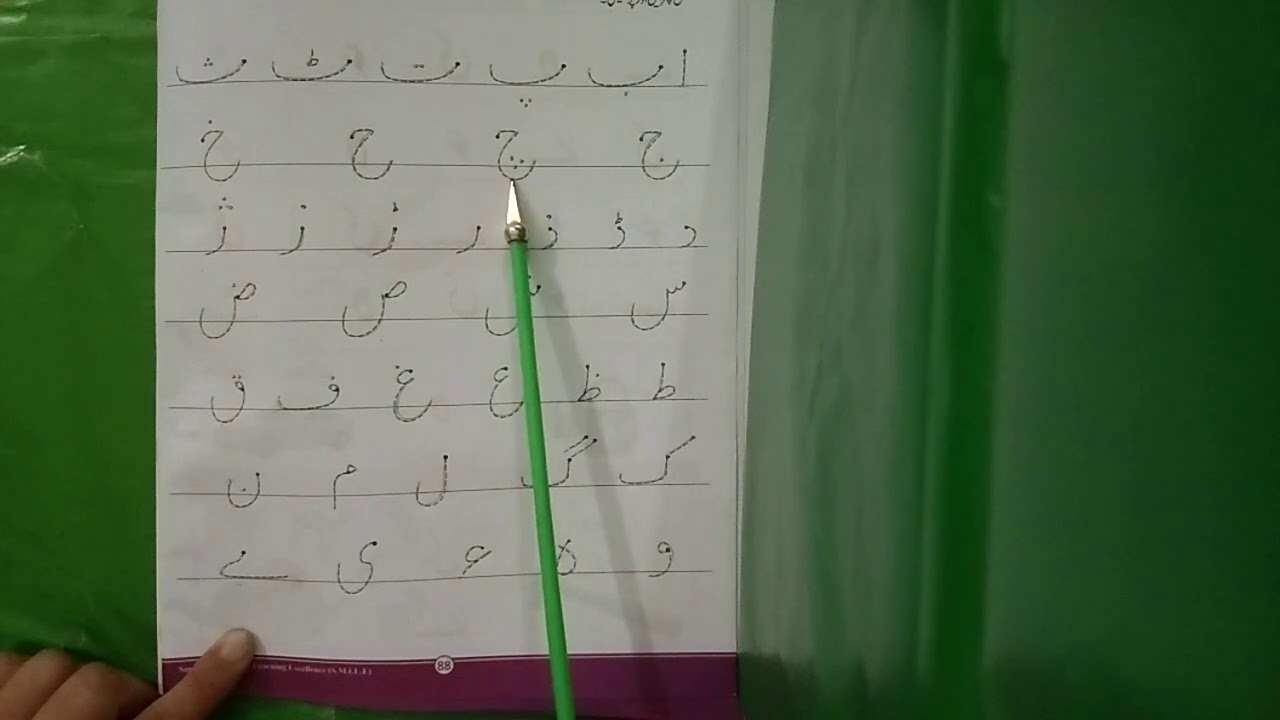 ا ب پ ت ٹ ث
ج چ ح خ
د ڈ ذ ر ڑ ز ژ
س ش ص ض
ط ظ ع غ ف ق
ک گ ل م ن
و ہ ء ی ے
Learning Excellence (S.M.I.L.E)
88